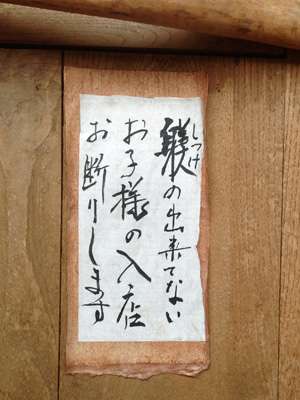 躾の出来てない
しつけ
お子様の入店
お断りします